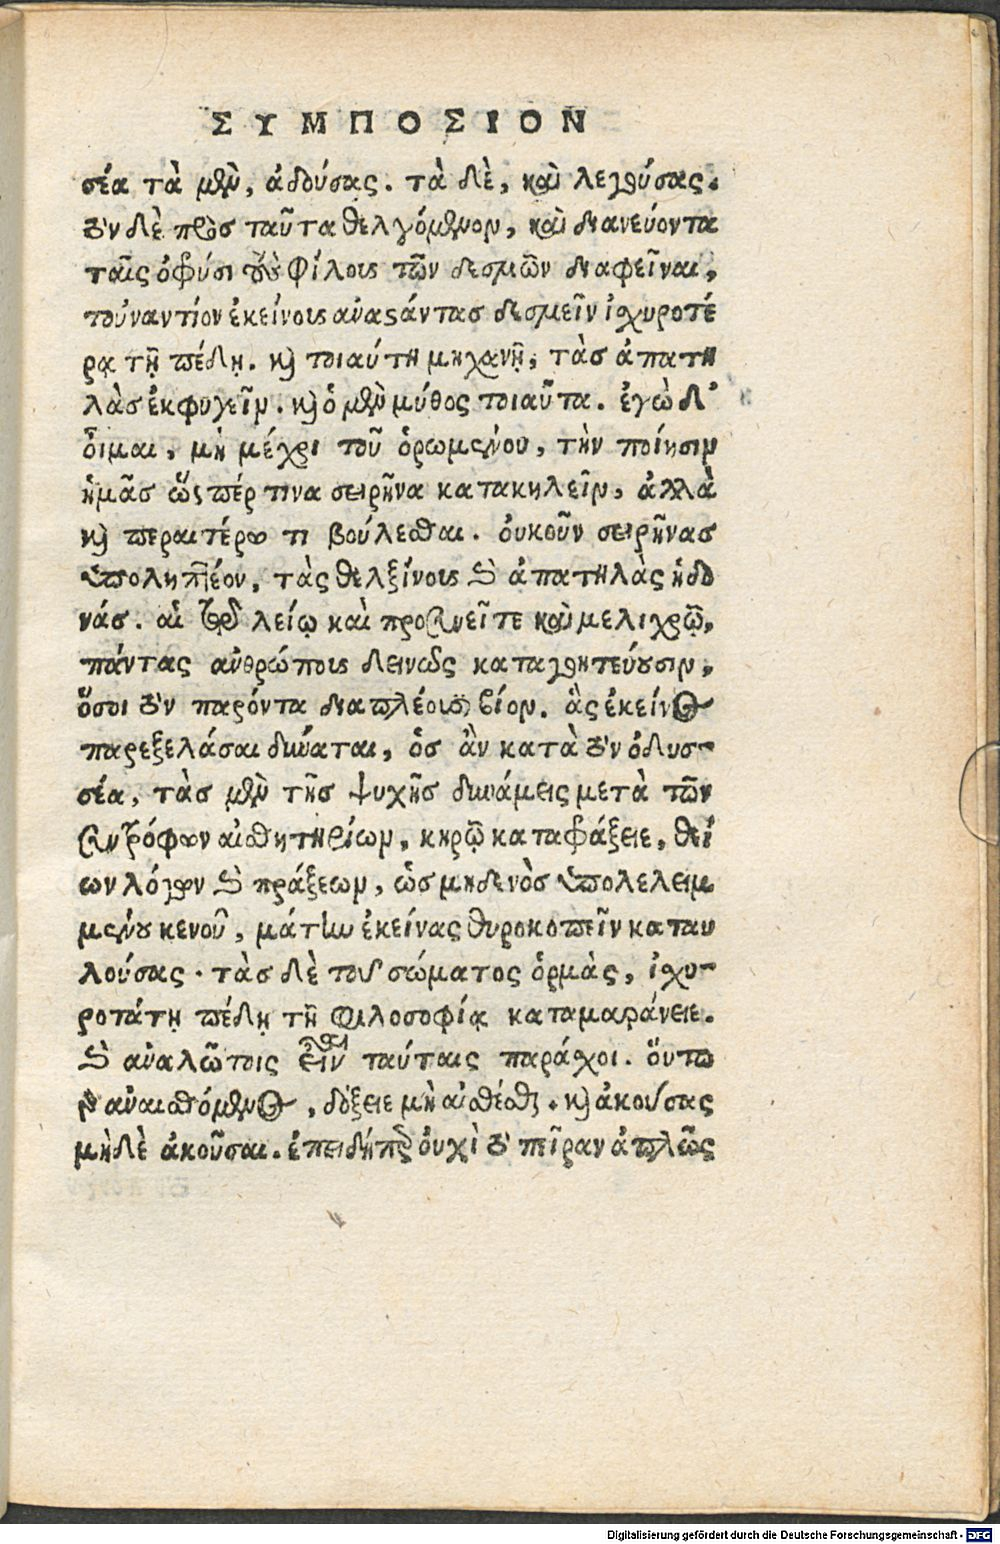 ΣΥΜΠΟΣΙΟΝ
σέα τὰ μὲν, ἀδούσας. τὰ δὲ, καὶ λεγούσας.
τὸν δὲ πρὸσ ταῦτα θελγόμενον, καὶ διανεύοντα
ταῖς ὀφρύσι τοὺς φίλους τῶν δεσμῶν διαφεῖναι,
τοὐναντίον ἐκείνους ἀναστάντασ δεσμεῖν ἰσχυροτέ
ρᾳ τῇ πέδῃ. καὶ τοιαύτη μηχανῇ, τὰσ ἀπατη
λὰσ ἐκφυγεῖν. καὶ ὁ μὲν μύθος τοιαῦτα. ἐγὼ δ'
οἶμαι, μὴ μέχρι τοῦ ὁρωμένου, τὴν ποίησιν
ἡμᾶσ ὥςπέρ τινα σειρῆνα κατακηλεῖν, ἀλλὰ
καὶ περαιτέρω τι βούλεσθαι. ὀυκοῦν σειρῆνασ
ὑποληπτέον, τὰς θελξίνους καὶ ἀπατηλὰς ἡδο
νάσ. αἱ γὰρ λείῳ καὶ προσηνεῖ τε καὶ μελιχρῷ,
πάντας ἀνθρώπους δεινῶς καταγοητεύουσιν,
ὅσοι τὸν παρόντα διαπλέουσι βίον. ἃς ἐκείνος
παρεξελάσαι δύναται, ὁσ ἂν κατὰ τὸν ὀδυσ-
σέα, τὰσ μὲν τῆσ ψυχῆσ δυνάμεις μετὰ τῶν
συντρόφων αἰσθητηρίων, κηρῷ καταφράξειε, θεί
ων λόγων καὶ πράξεων, ὡσ μηδενὸσ ὑπολελειμ
μένου κενοῦ, μάτην ἐκείνας θυροκοπεῖν καταυ
λούσας. τὰσ δὲ τοῦ σώματος ὁρμὰς, ἰσχυ-
ροτάτῃ πέδῃ τῇ φιλοσοφίᾳ καταμαράνειε.
καὶ ἀναλῶτοις εἶναι ταύταις παράσχοι. ὅυτω
γὰρ ἀναισθόμενος, δόξειε μὴ αἰσθέσθαι. καὶ ἀκούσας
μὴδὲ ἀκοῦσαι. ἐπειδήπερ ὀυχὶ τὸ πεῖραν ἁπλῶς
Digitalisierung gefördert durch die Deutsche Forschungsgemeinschaft - DFG